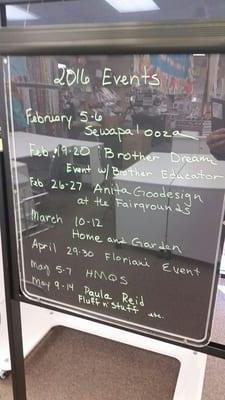 2016 Events
February 5-6
Sewapalooza
Feb. 19-20 Brother Dream
Event w/ Brother Educator
Feb 26-27 Anita Goodesign
at the Fairgrounds
March 10-12
Home and Garden
April 29-30 Floriani Event
May 5-7 HMQS
May 9-14 Paula Reid
Fluff n' Stuff etc.